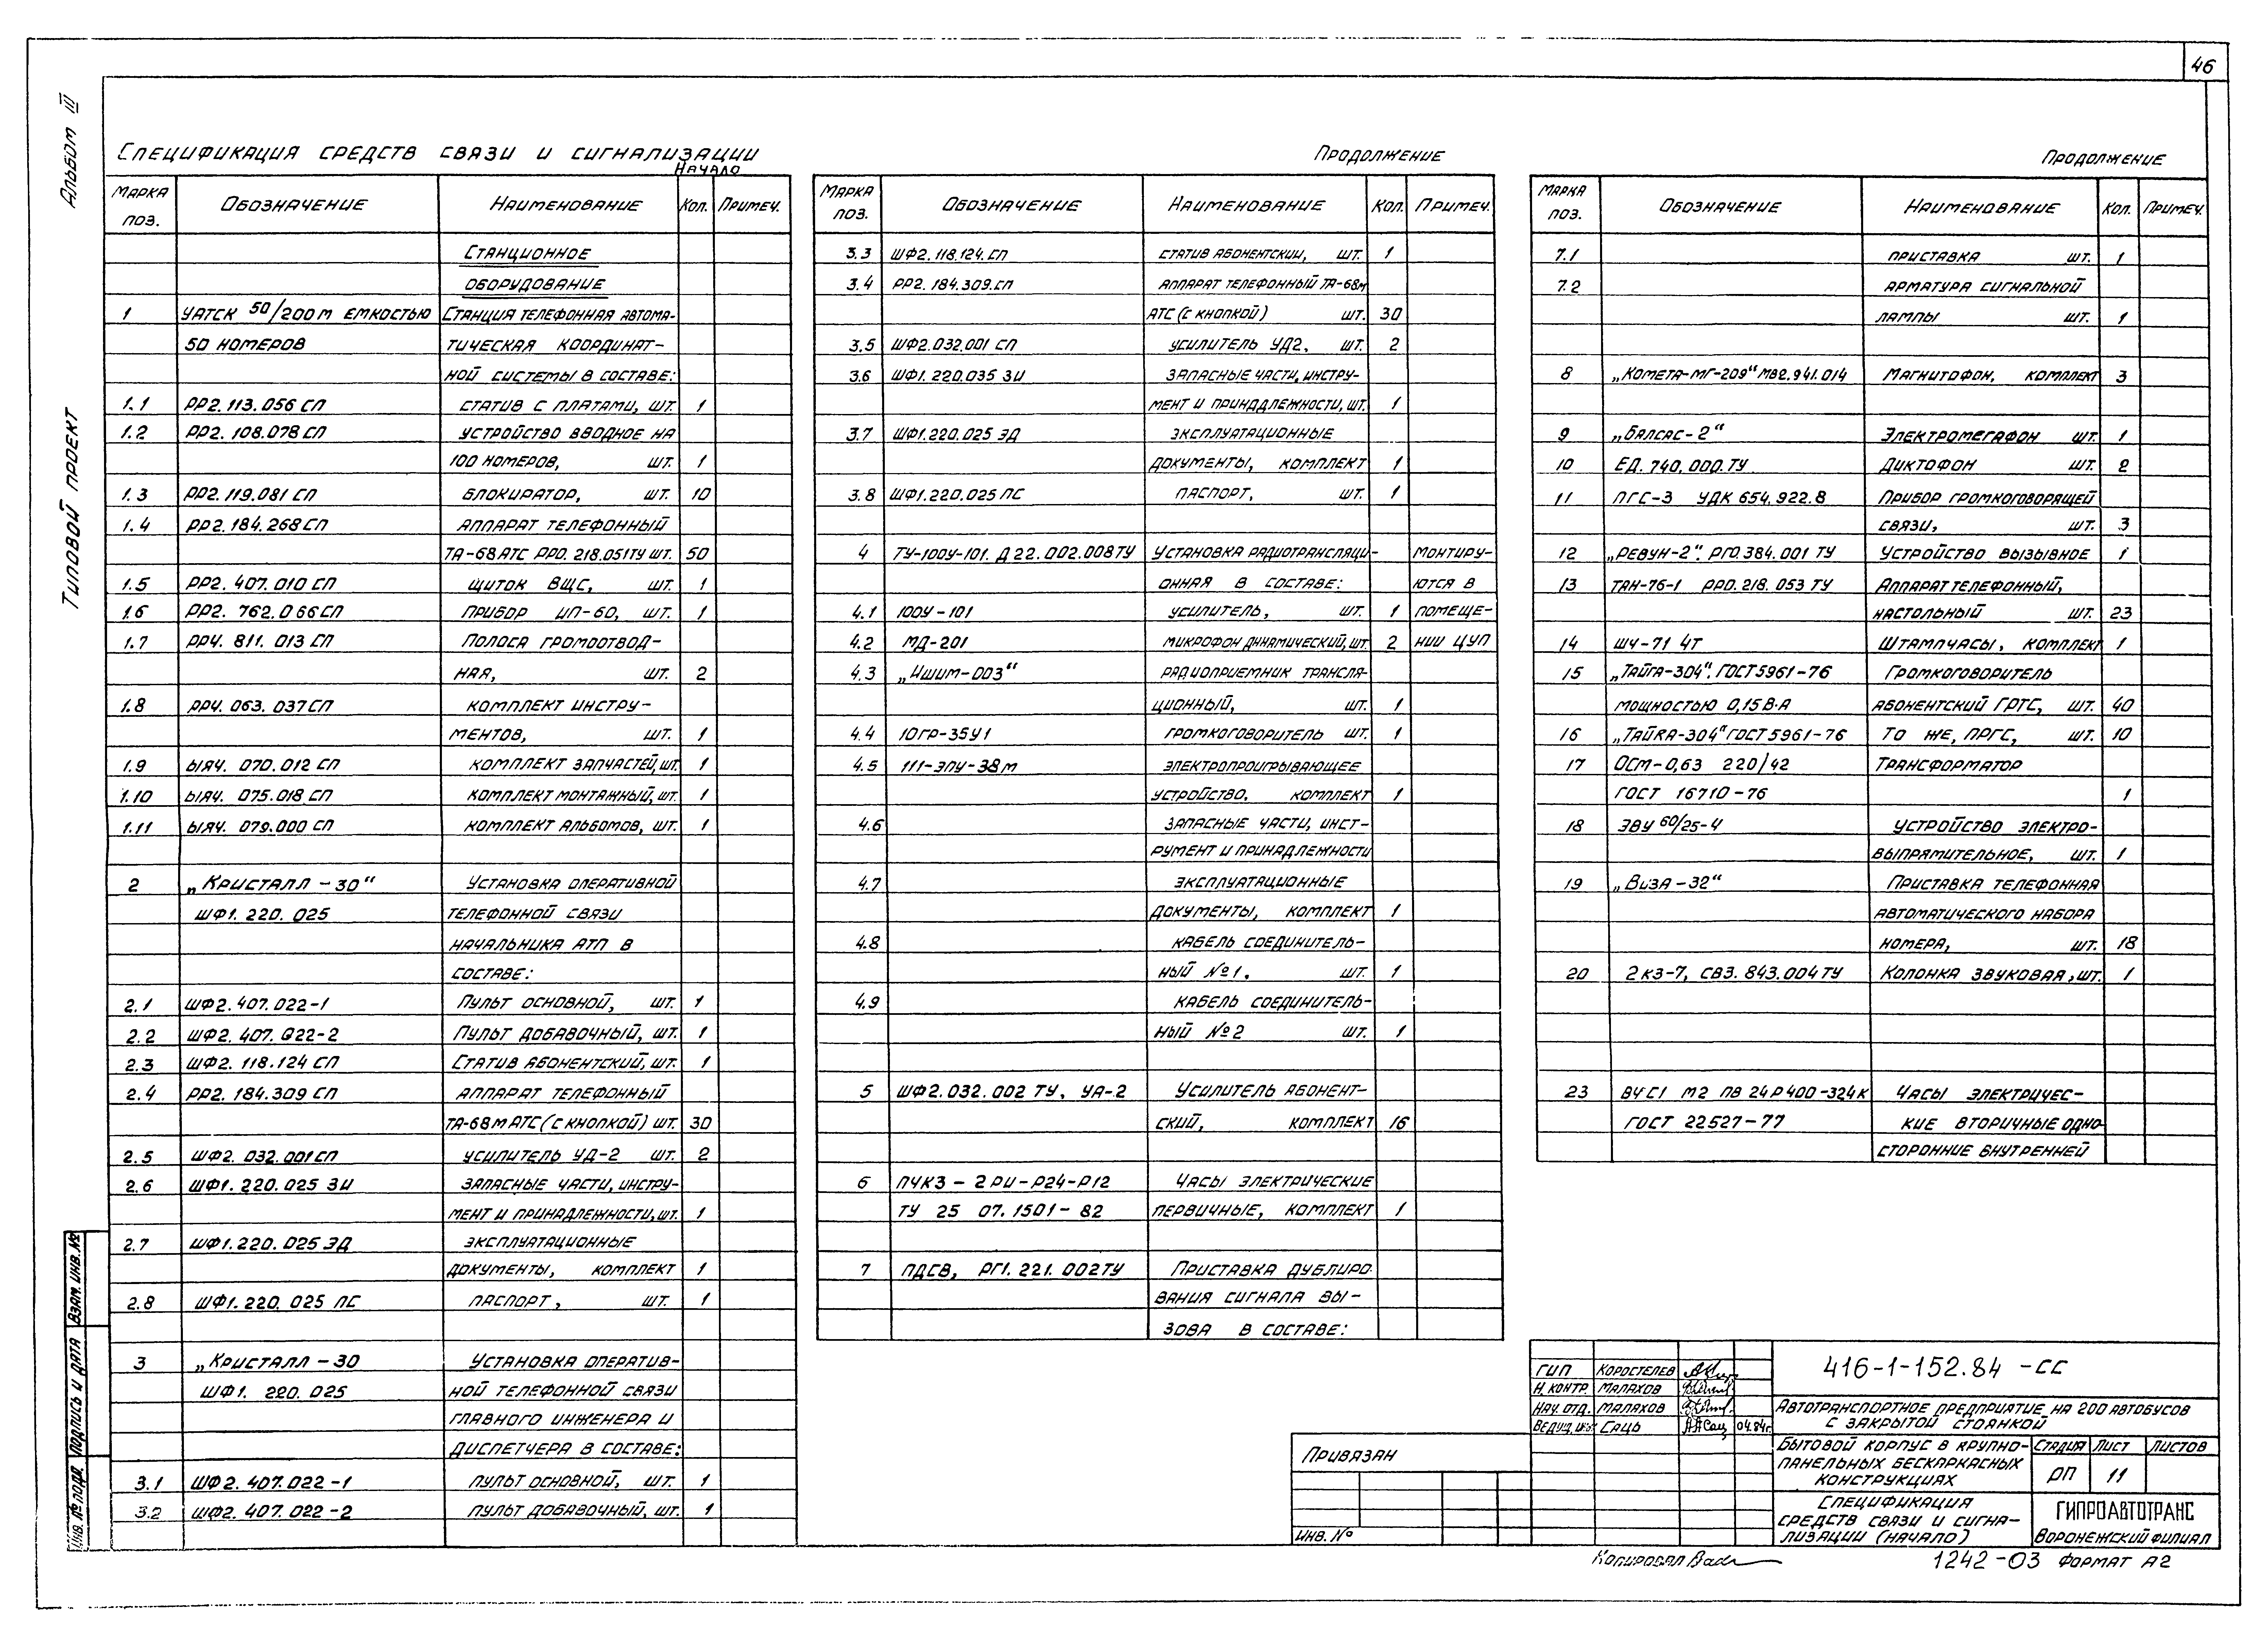 46
Альбом III
Типовой проект
Спецификация средств связи и сигнализации
Начало
Марка поз. Обозначение Наименование Кол. Примеч.
Станционное
оборудование
1 УАТСК 50/200м емкостью Станция телефонная автома-
50 номеров тическая координат-
ной системы в составе:
1.1 РР2.113.056 СП статив с платами, шт. 1
1.2 РР2.108.078 СП устройство вводное на
100 номеров, шт. 1
1.3 РР2.119.081 СП блокиратор, шт. 10
1.4 РР2.184.268 СП аппарат телефонный
ТА-68 АТС РР0.218.051ТУ шт. 50
1.5 РР2.407.010 СП щиток ВЩС, шт. 1
1.6 РР2.762.066 СП прибор ИП-60, шт. 1
1.7 РР4.811.013 СП полоса громоотвод-
ная, шт. 2
1.8 РР4.063.037 СП комплект инстру-
ментов, шт. 1
1.9 ЫЯ4.070.012 СП комплект запчастей, шт. 1
1.10 ЫЯ4.075.018 СП комплект монтажный, шт. 1
1.11 ЫЯ4.079.000 СП комплект альбомов, шт. 1
2 „Кристалл-30“ Установка оперативной
ШФ1.220.025 телефонной связи
начальника АТП в
составе:
2.1 ШФ2.407.022-1 Пульт основной, шт. 1
2.2 ШФ2.407.022-2 Пульт добавочный, шт. 1
2.3 ШФ2.118.124 СП Статив абонентский, шт. 1
2.4 РР2.184.309 СП аппарат телефонный
ТА-68м АТС (с кнопкой) шт. 30
2.5 ШФ2.032.001 СП усилитель УД-2 шт. 2
2.6 ШФ1.220.025 ЗИ запасные части, инстру-
мент и принадлежности, шт. 1
2.7 ШФ1.220.025 ЭД эксплуатационные
документы, комплект 1
2.8 ШФ1.220.025 ПС паспорт, шт. 1
3 „Кристалл-30 Установка оператив-
ШФ1.220.025 ной телефонной связи
главного инженера и
диспетчера в составе:
3.1 ШФ2.407.022-1 пульт основной, шт. 1
3.2 ШФ2.407.022-2 пульт добавочный, шт. 1
Продолжение
Марка поз. Обозначение Наименование Кол. Примеч.
3.3 ШФ2.118.124.СП статив абонентский, шт. 1
3.4 РР2.184.309.СП аппарат телефонный ТА-68м
АТС (с кнопкой) шт. 30
3.5 ШФ2.032.001 СП усилитель УД2, шт. 2
3.6 ШФ1.220.035 ЗИ запасные части, инстру-
мент и принадлежности, шт. 1
3.7 ШФ1.220.025 ЭД эксплуатационные
документы, комплект 1
3.8 ШФ1.220.025 ПС паспорт, шт. 1
4 ТУ-100У-101. Д22.002.008ТУ Установка радиотрансляци- монтиру-
онная в составе: ются в
4.1 100У-101 усилитель, шт. 1 помеще-
4.2 МД-201 микрофон динамический, шт. 2 нии ЦУП
4.3 „Ишим-003“ радиоприемник трансля-
ционный, шт. 1
4.4 10ГР-35У1 громкоговоритель шт. 1
4.5 111-ЭПУ-38м электропроигрывающее
устройство, комплект 1
4.6 запасные части, инст-
румент и принадлежности
4.7 эксплуатационные
документы, комплект 1
4.8 кабель соединитель-
ный №1, шт. 1
4.9 кабель соединитель-
ный №2 шт. 1
5 ШФ2.032.002 ТУ, УА-2 Усилитель абонент-
ский, комплект 16
6 ПЧК3-2РИ-Р24-Р12 Часы электрические
ТУ 25 07.1501-82 первичные, комплект 1
7 ПДСВ, РГ1.221.002ТУ Приставка дублиро
вания сигнала вы-
зова в составе:
Продолжение
Марка поз. Обозначение Наименование Кол. Примеч.
7.1 приставка шт. 1
7.2 арматура сигнальной
лампы шт. 1
8 „Комета-МГ-209“ МВ2.941.014 Магнитофон, комплект 3
9 „Балсас-2“ Электромегафон шт. 1
10 ЕД.740.000.ТУ Диктофон шт. 2
11 ПГС-3 УДК 654.922.8 Прибор громкоговорящей
связи, шт. 3
12 „Ревун-2“. РГ0.384.001 ТУ Устройство вызывное 1
13 ТАН-76-1 РР0.218.053 ТУ Аппарат телефонный,
настольный шт. 23
14 ШЧ-71 4Т Штампчасы, комплект 1
15 „Тайга-304“. ГОСТ 5961-76 Громкоговоритель
мощностью 0,15 В·А абонентский ГРТС, шт. 40
16 „Тайга-304“ ГОСТ 5961-76 То же, ПРГС, шт. 10
17 ОСМ-0,63 220/42 Трансформатор
ГОСТ 16710-76 1
18 ЗВУ 60/25-4 Устройство электро-
выпрямительное, шт. 1
19 „Виза-32“ Приставка телефонная
автоматического набора
номера, шт. 18
20 2КЗ-7, СВ3.843.004ТУ Колонка звуковая, шт. 1
23 ВЧС1 М2 ПВ 24Р 400-324К Часы электричес-
ГОСТ 22527-77 кие вторичные одно-
сторонние внутренней
Взам. инв. №
Подпись и дата
Инв. № подл.
Привязан
Инв. №
ГИП Коростелев
Н. контр. Малахов
Нач. отд. Малахов
Ведущ. инж. Саць 04.84г.
416-1-152.84 -СС
Автотранспортное предприятие на 200 автобусов
с закрытой стоянкой
Бытовой корпус в крупно-
панельных бескаркасных
конструкциях
Стадия Лист Листов
РП 11
Спецификация
средств связи и сигна-
лизации (начало)
ГИПРОАВТОТРАНС
Воронежский филиал
Копировал
1242-03 Формат А2